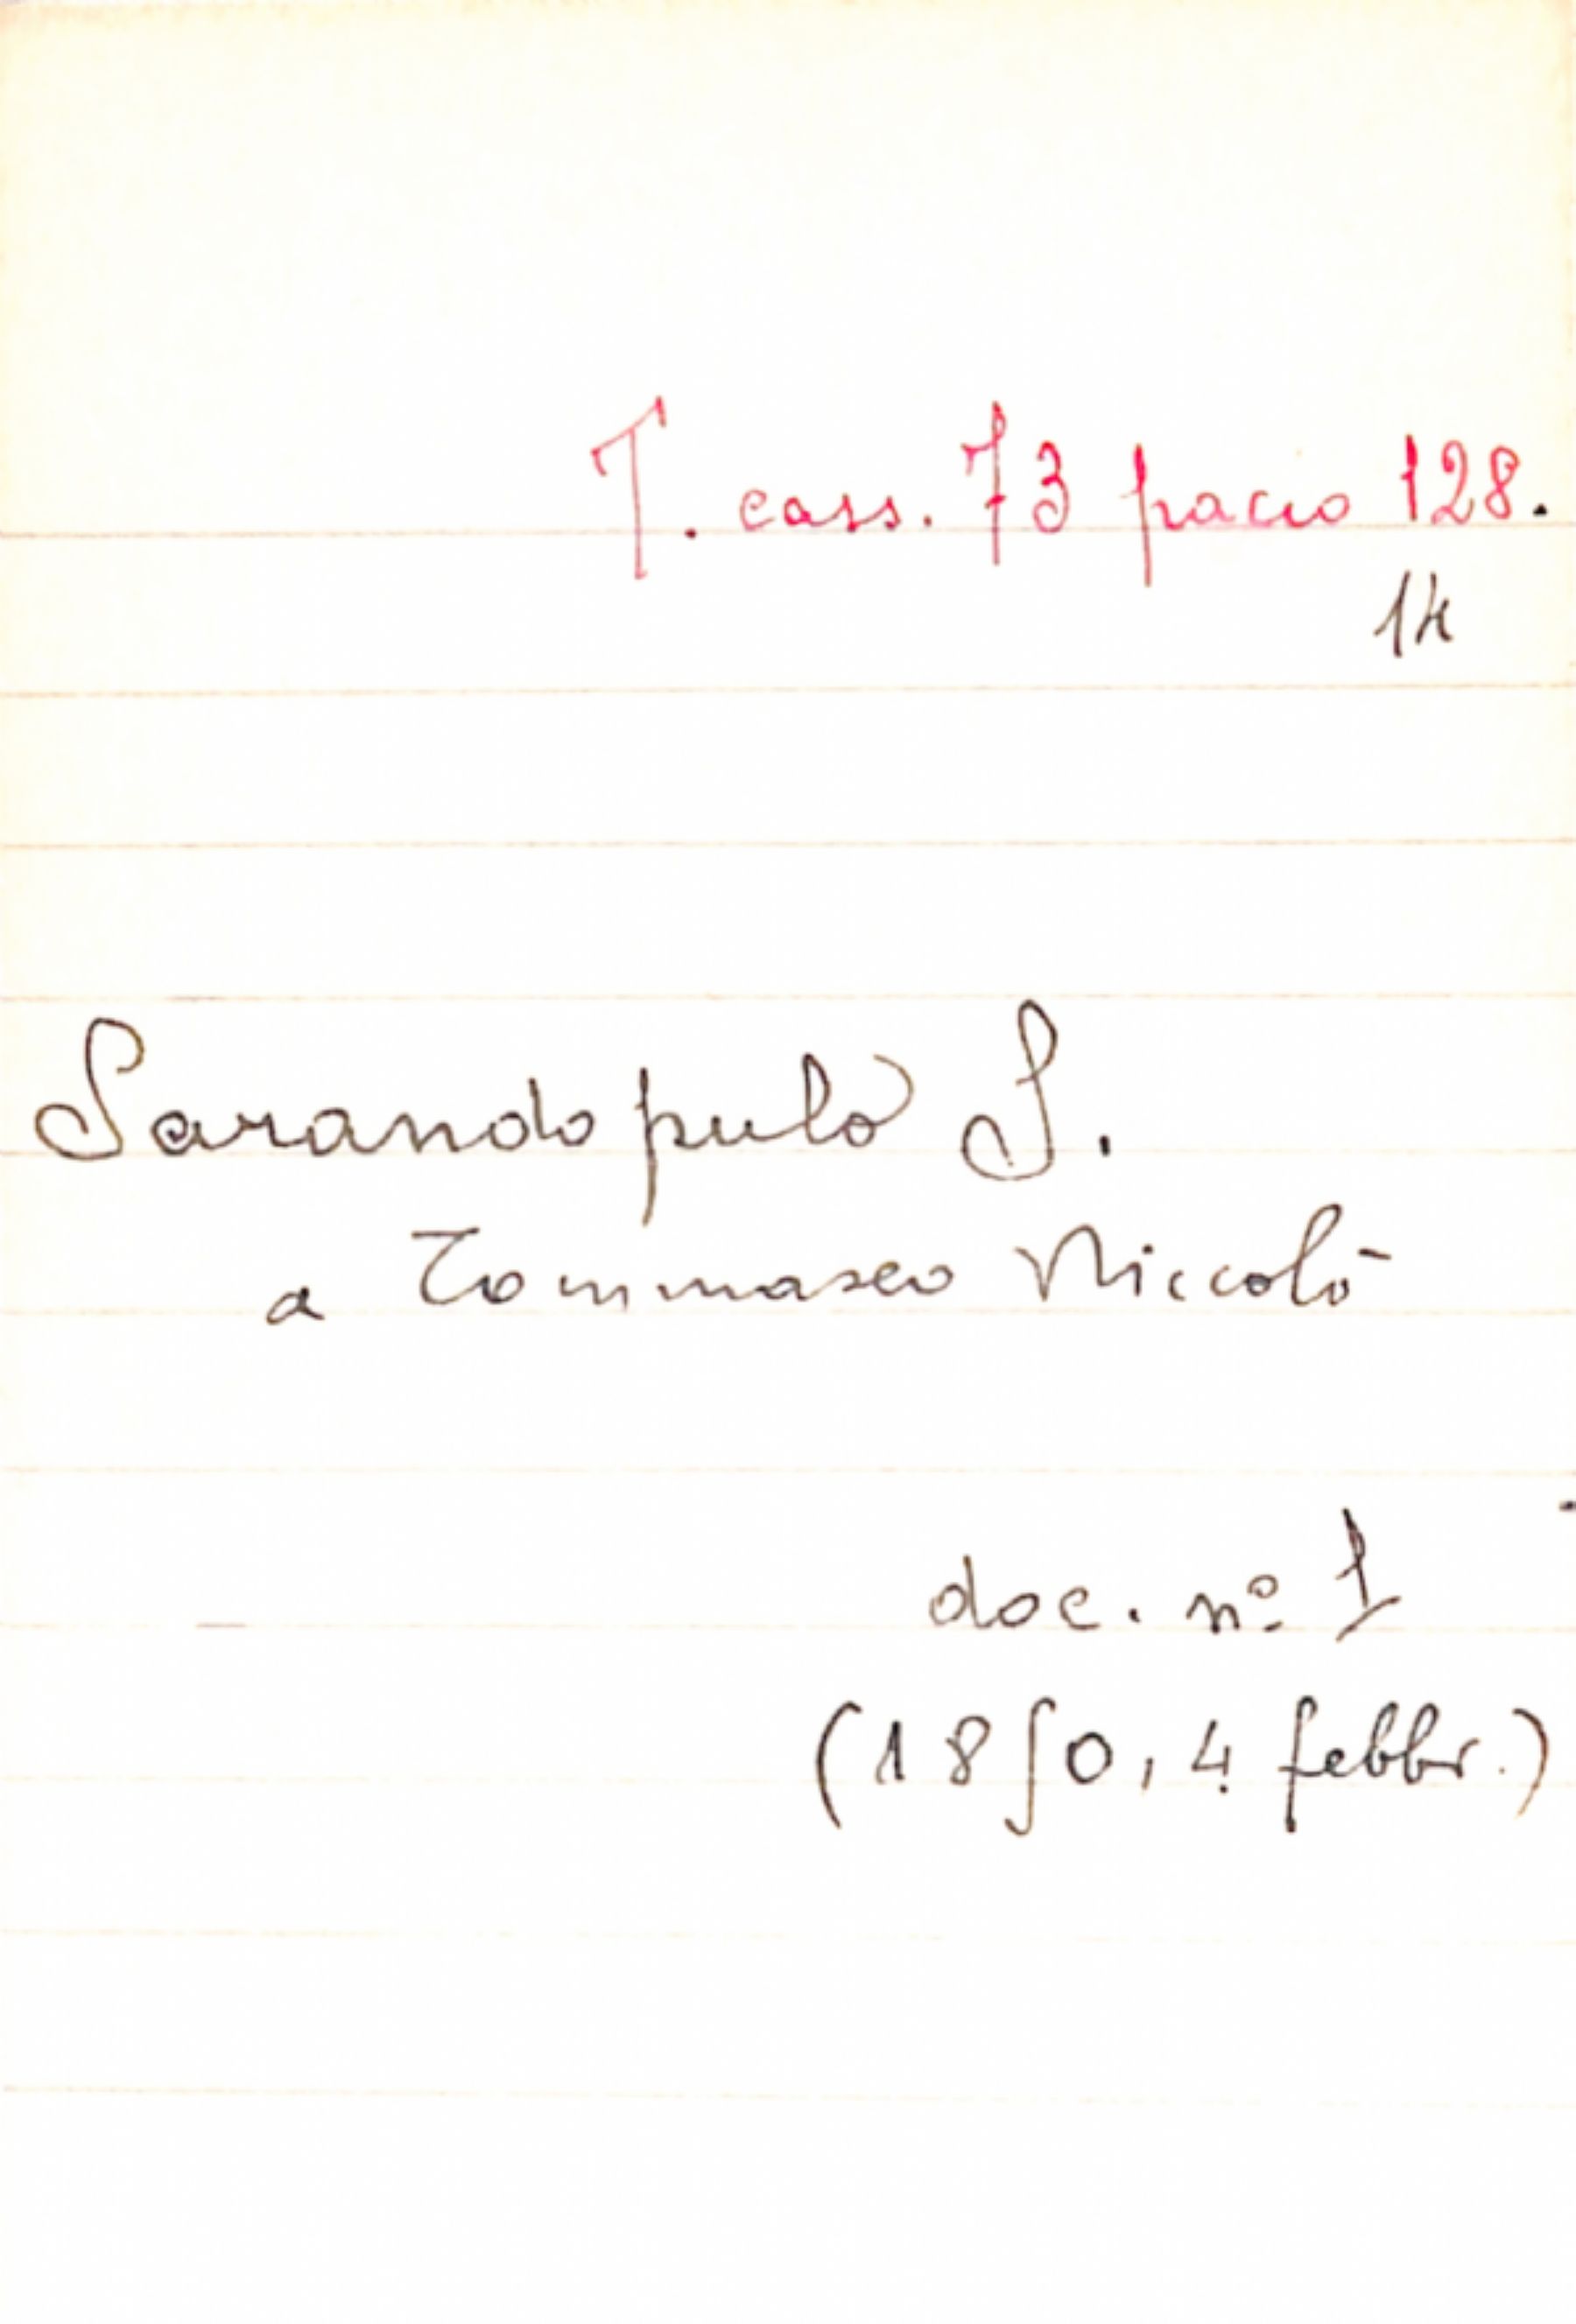 T. cass. 73 pacco 128.
14
Sarandopulo S.
a Tommaseo Niccolò
doc. nº 1
(1850, 4 febbr.)